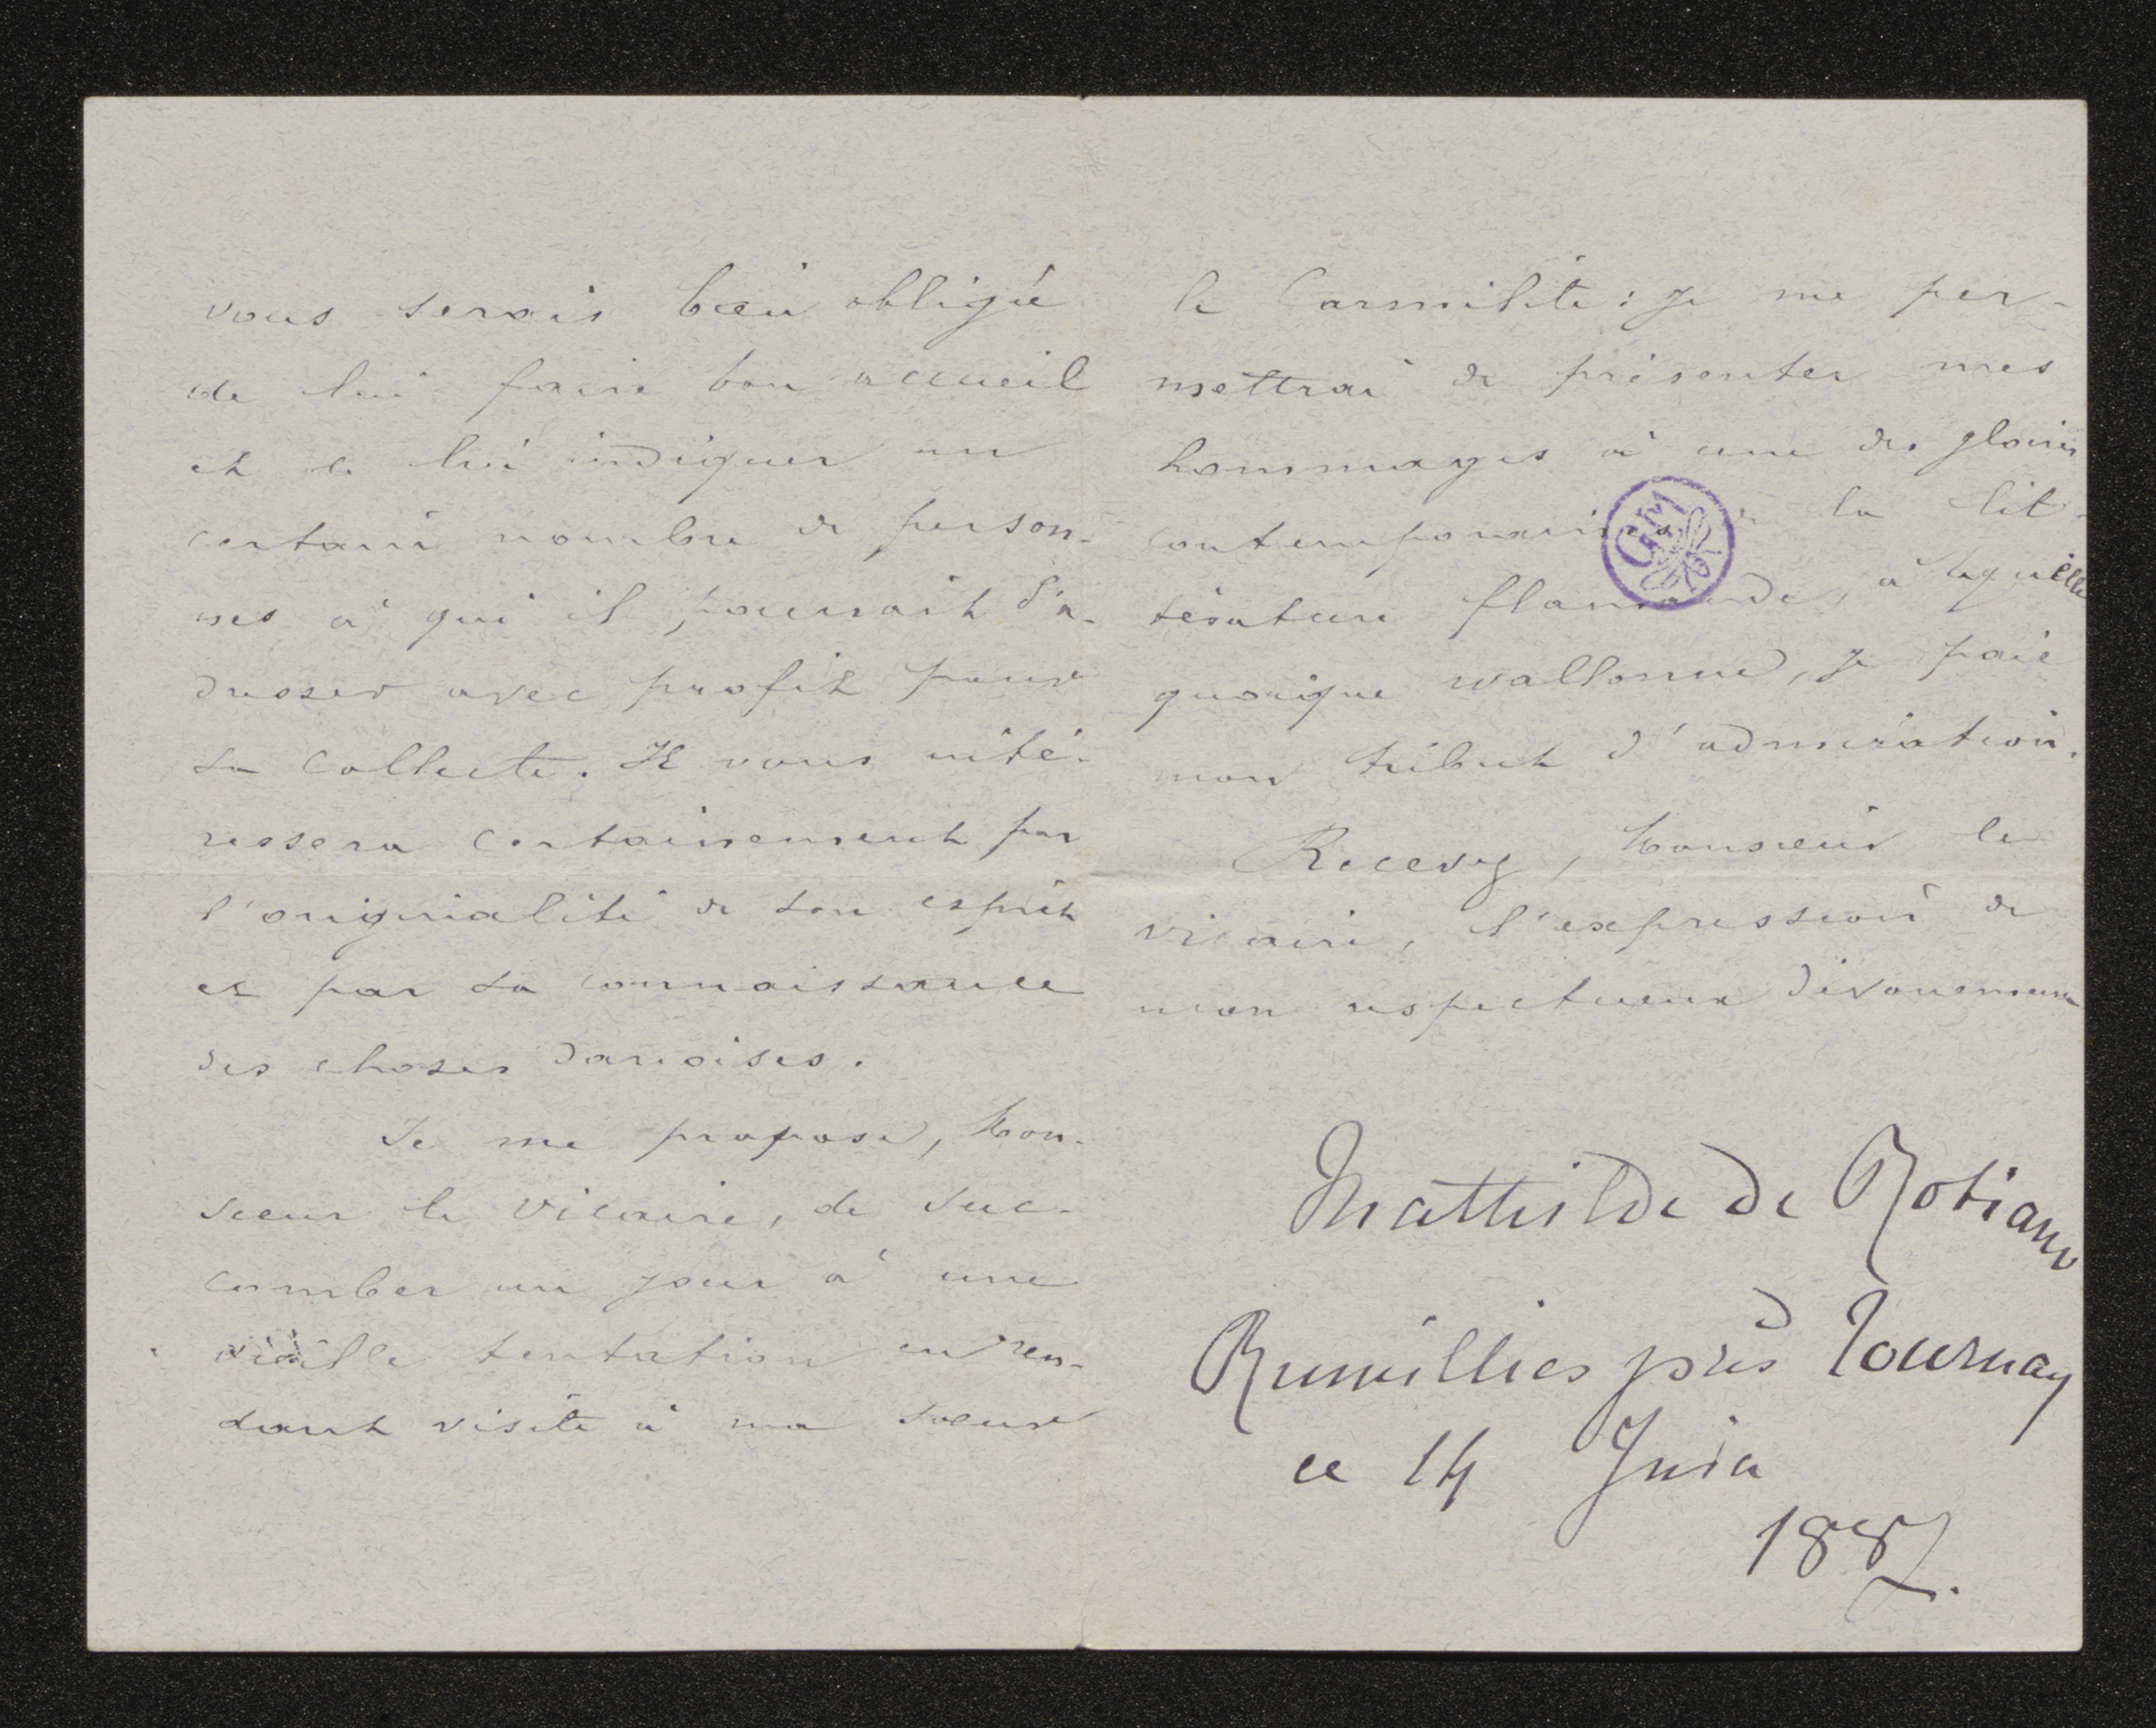 vous serais bien obligée
de lui faire bon accueil
et de lui indiquer un
certain nombre de person-
nes à qui il pourrait s'a-
dresser avec profit pour
sa collecte. Il vous inté-
ressera certainement par
l'originalité de son esprit
et par sa connaissance
des choses danoises.
Je me propose, Mon-
sieur le Vicaire, de suc-
comber un jour à une
vieille tentation en ren-
dant visite à ma soeur
la Carmélite: je me per-
mettrai de présenter mes
hommages à une des gloires
contemporaines de la lit-
térature flamande, à laquelle
quoique wallonne, je paie
mon tribut d'admiration.
Recevez, Monsieur le
vicaire, l'expression de
mon respectueux dévouement
GGM
Mathilde de Robiano
Rumillies près Tournay
ce 14 Juin
1887.